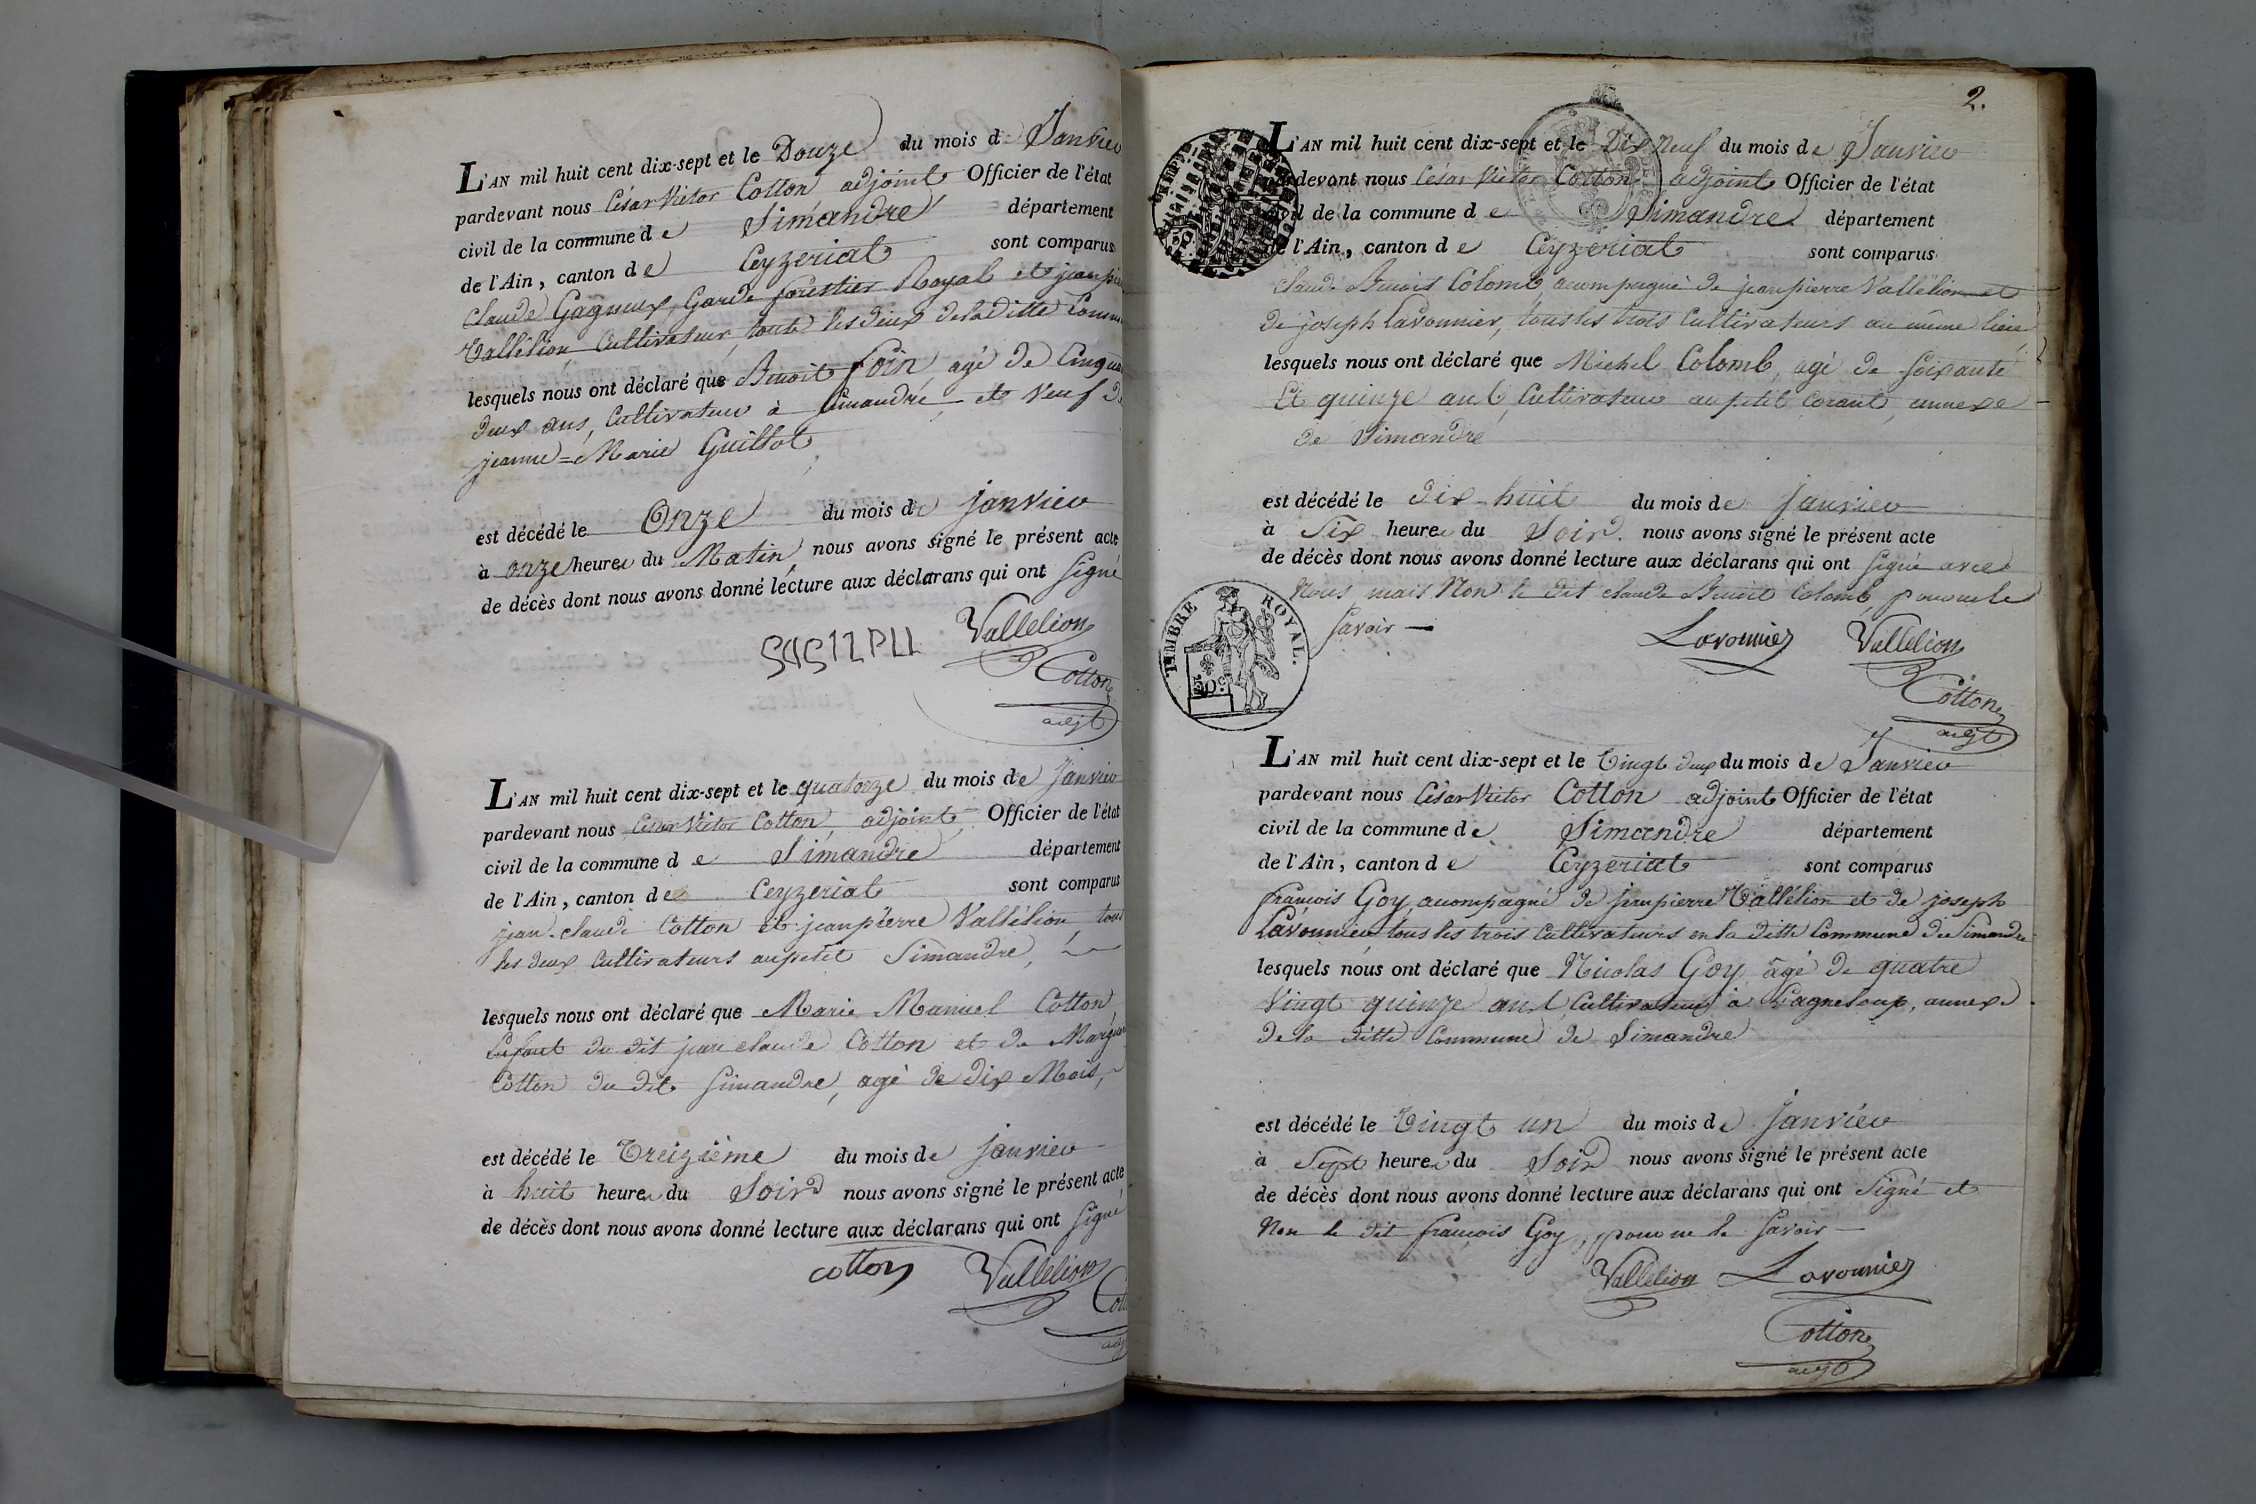 L'AN mil huit cent dix-sept et le Douze du mois de Janvier
pardevant nous César Victor Cotton adjoint Officier de l'état
civil de la commune de Simandre département
de l'Ain, canton de Ceyzeriat sont comparus
claude Gagneux, Garde forestier Royal et jean pierre
Vallélion Cultivateur, touts les deux de la ditte Commune
lesquels nous ont déclaré que Benoit Foin, agé de Cinquante
deux ans, Cultivateur à Simandre, et Veuf de
jeanne=Marie Guillot
est décédé le Onze du mois de janvier
à onze heures du Matin, nous avons signé le présent acte
de décès dont nous avons donné lecture aux déclarans qui ont signé
Vallelion
Cotton
adjt
L'AN mil huit cent dix-sept et le quatorze du mois de Janvier
pardevant nous César Victor Cotton, adjoint, Officier de l'état
civil de la commune de Simandre département
de l'Ain, canton de Ceyzeriat sont comparus
jean-claude Cotton et jean pierre Vallélion, tous
les deux Cultivateurs au petit Simandre,
lesquels nous ont déclaré que Marie Manuel Cotton
Enfant du dit jean claude Cotton et de
Cotton du dit Simandre, agé de dix Mois,
est décédé le Treizième du mois de janvier
à huit heures du Soir nous avons signé le présent acte
de décès dont nous avons donné lecture aux déclarans qui ont signé
cotton Vallelion
2.
L'AN mil huit cent dix-sept et le Dix Neuf du mois de Janvier
pardevant nous César Victor Cotton adjoint Officier de l'état
civil de la commune de Simandre département
de l'Ain, canton de Ceyzeriat sont comparus
claude Benoit Colomb, acompagné de jean pierre Vallélion et
de joseph Lavounier, tous les trois Cultivateurs au même lieu
lesquels nous ont déclaré que Michel Colomb, agé de soixante
Et quinze ans, Cultivateur au petit Corant, annexe
de Simandre
est décédé le dix-huit du mois de janvier
à Six heures du Soir. nous avons signé le présent acte
de décès dont nous avons donné lecture aux déclarans qui ont signé avec
Nous mais Non le dit claude Benoit Colomb, pour ne le
savoir
TIMBRE ROYAL.
50c
Lavounier Vallelion
Cotton
adjt
L'AN mil huit cent dix-sept et le Vingt deux du mois de Janvier
pardevant nous César Victor Cotton adjoint Officier de l'état
civil de la commune de Simandre département
de l'Ain, canton de Ceyzeriat sont comparus
françois Goy, acompagné de jean pierre Vallélion et de joseph
Lavounier, tous les trois Cultivateurs en la ditte Commune de Simandre
lesquels nous ont déclaré que Nicolas Goy âgé de quatre
Vingt quinze ans, Cultivateur à Gagneloup, annexe
de la ditte Commune de Simandre
est décédé le Vingt un du mois de janvier
à Sept heures du Soir nous avons signé le présent acte
de décès dont nous avons donné lecture aux déclarans qui ont Signé et
Non le dit françois Goy, pour ne le savoir
Vallelion Lavounier
Cotton
adjt